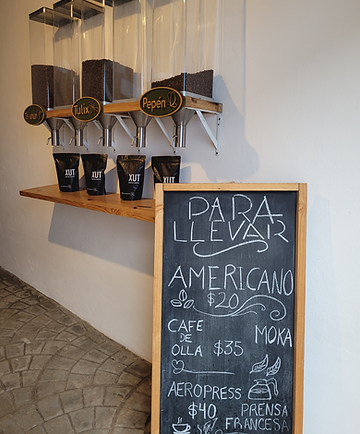 Tulix
Pepén
XUT
XUT
XUT
XUT
PARA
LLEVAR
AMERICANO
$20
CAFE
DE
OLLA $35
MOKA
AEROPRESS
$40
PRENSA
FRANCESA